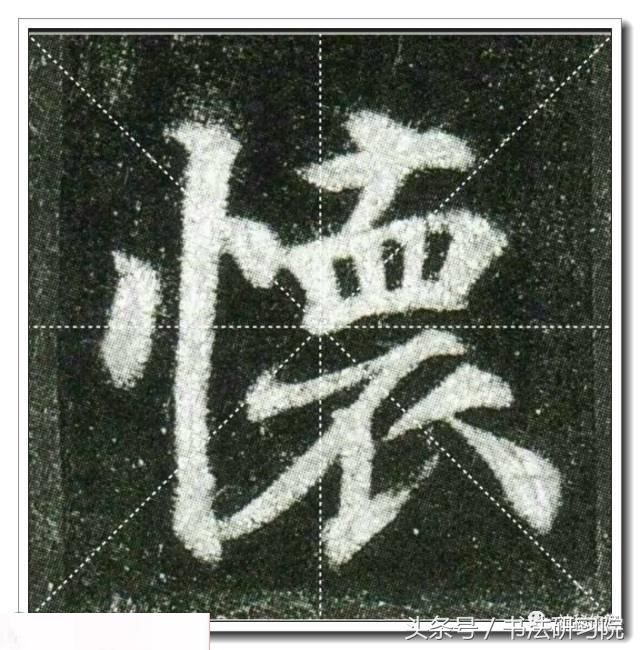 懷
头条号 / 书法研习院